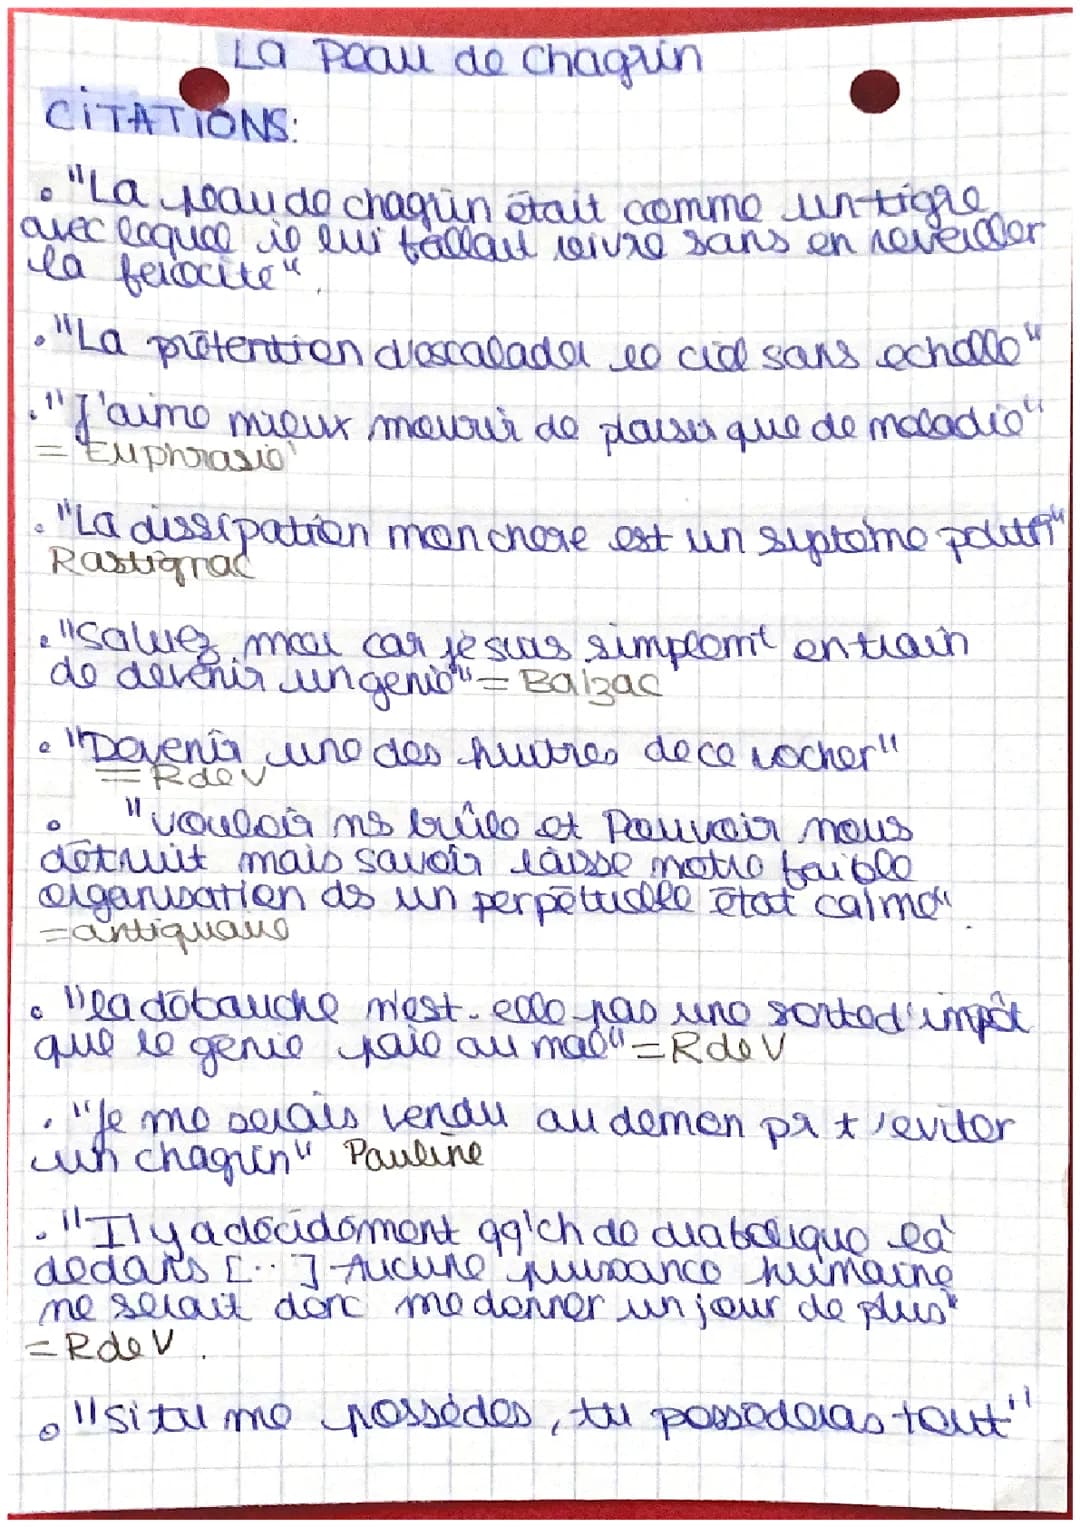 La Peau de chagrin
CiTATiONS:
• "La peau de chagrin était comme un tigre
avec lequel il lui fallait vivre sans en reveiller
la ferocite".
• "La prétention d'escalader le ciel sans echelle"
• "J'aime mieux mourir de plaisir que de maladie"
= Euphrasie
• "La dissipation mon chere est un systeme polit"
Rastignac
• "Saluez moi car je suis simplemt entrain
de devenir un genie" = Balzac
• "Devenir une des huitres de ce rocher"
= R de V
• "Vouloir ns brûle et Pouvoir nous
détruit mais savoir laisse notre faible
organisation ds un perpétuelle état calme".
= antiquaire
• "la débauche n'est-elle pas une sorte d'impôt
que le génie paie au mal" = R de V
• "Je me serais vendu au demon pr t'eviter
un chagrin" Pauline
• "Il y a décidément qq'ch de diabolique là
dedans [...] Aucune puissance humaine
ne serait donc me donner un jour de plus"
= R de V.
• "si tu me possédes, tu possederas tout"